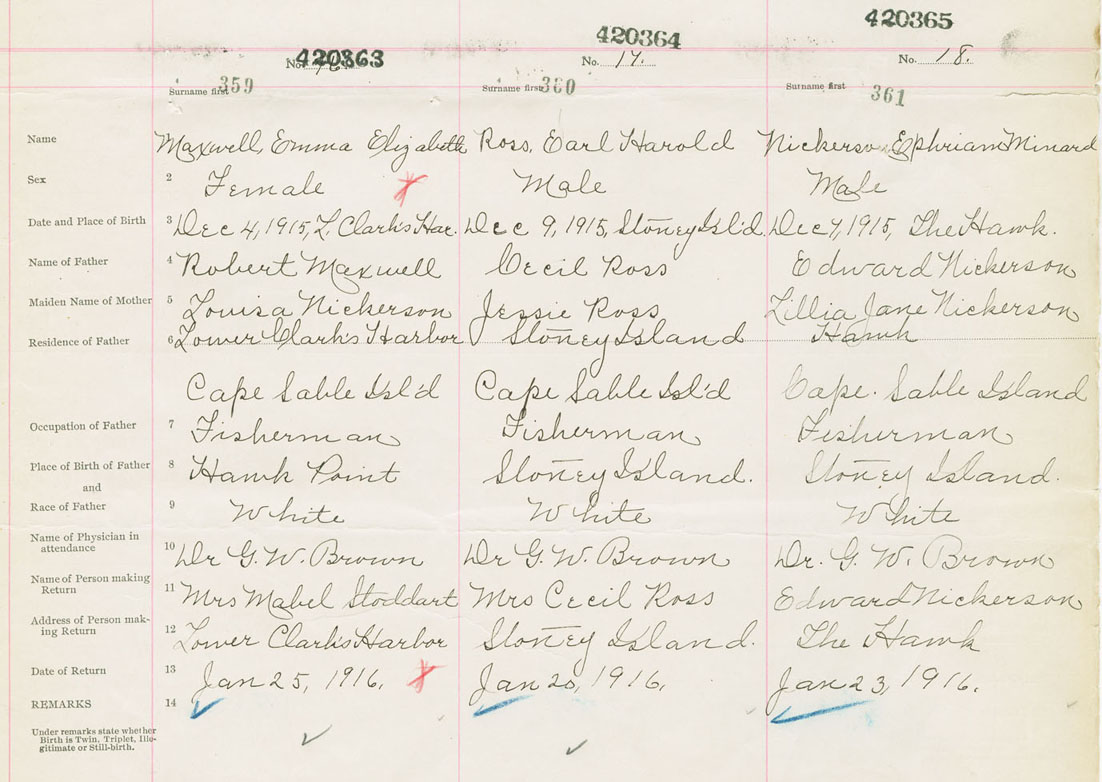 420363 420364 420365
No. No. 17. No. 18.
Surname first 359 Surname first 360 Surname first 361
Name Maxwell, Emma Elizabeth Ross, Earl Harold Nickerson Ephriam Minard
Sex 2 Female Male Male
Date and Place of Birth 3 Dec 4, 1915, L. Clark's Har. Dec 9, 1915, Stoney Isl'd. Dec 7, 1915, The Hawk.
Name of Father 4 Robert Maxwell Cecil Ross Edward Nickerson
Maiden Name of Mother 5 Louisa Nickerson Jessie Ross Lillia Jane Nickerson
Residence of Father 6 Lower Clark's Harbor Stoney Island Hawk
Cape Sable Isl'd Cape Sable Isl'd Cape. Sable Island
Occupation of Father 7 Fisherman Fisherman Fisherman
Place of Birth of Father 8 Hawk Point Stoney Island. Stoney Island.
and
Race of Father 9 White White White
Name of Physician in
attendance 10 Dr G. W. Brown Dr G. W. Brown Dr. G. W. Brown
Name of Person making
Return 11 Mrs Mabel Stoddart Mrs Cecil Ross Edward Nickerson
Address of Person mak-
ing Return 12 Lower Clark's Harbor Stoney Island. The Hawk
Date of Return 13 Jan 25, 1916. Jan 20, 1916. Jan 23, 1916.
REMARKS 14
Under remarks state whether
Birth is Twin, Triplet, Ille-
gitimate or Still-birth.